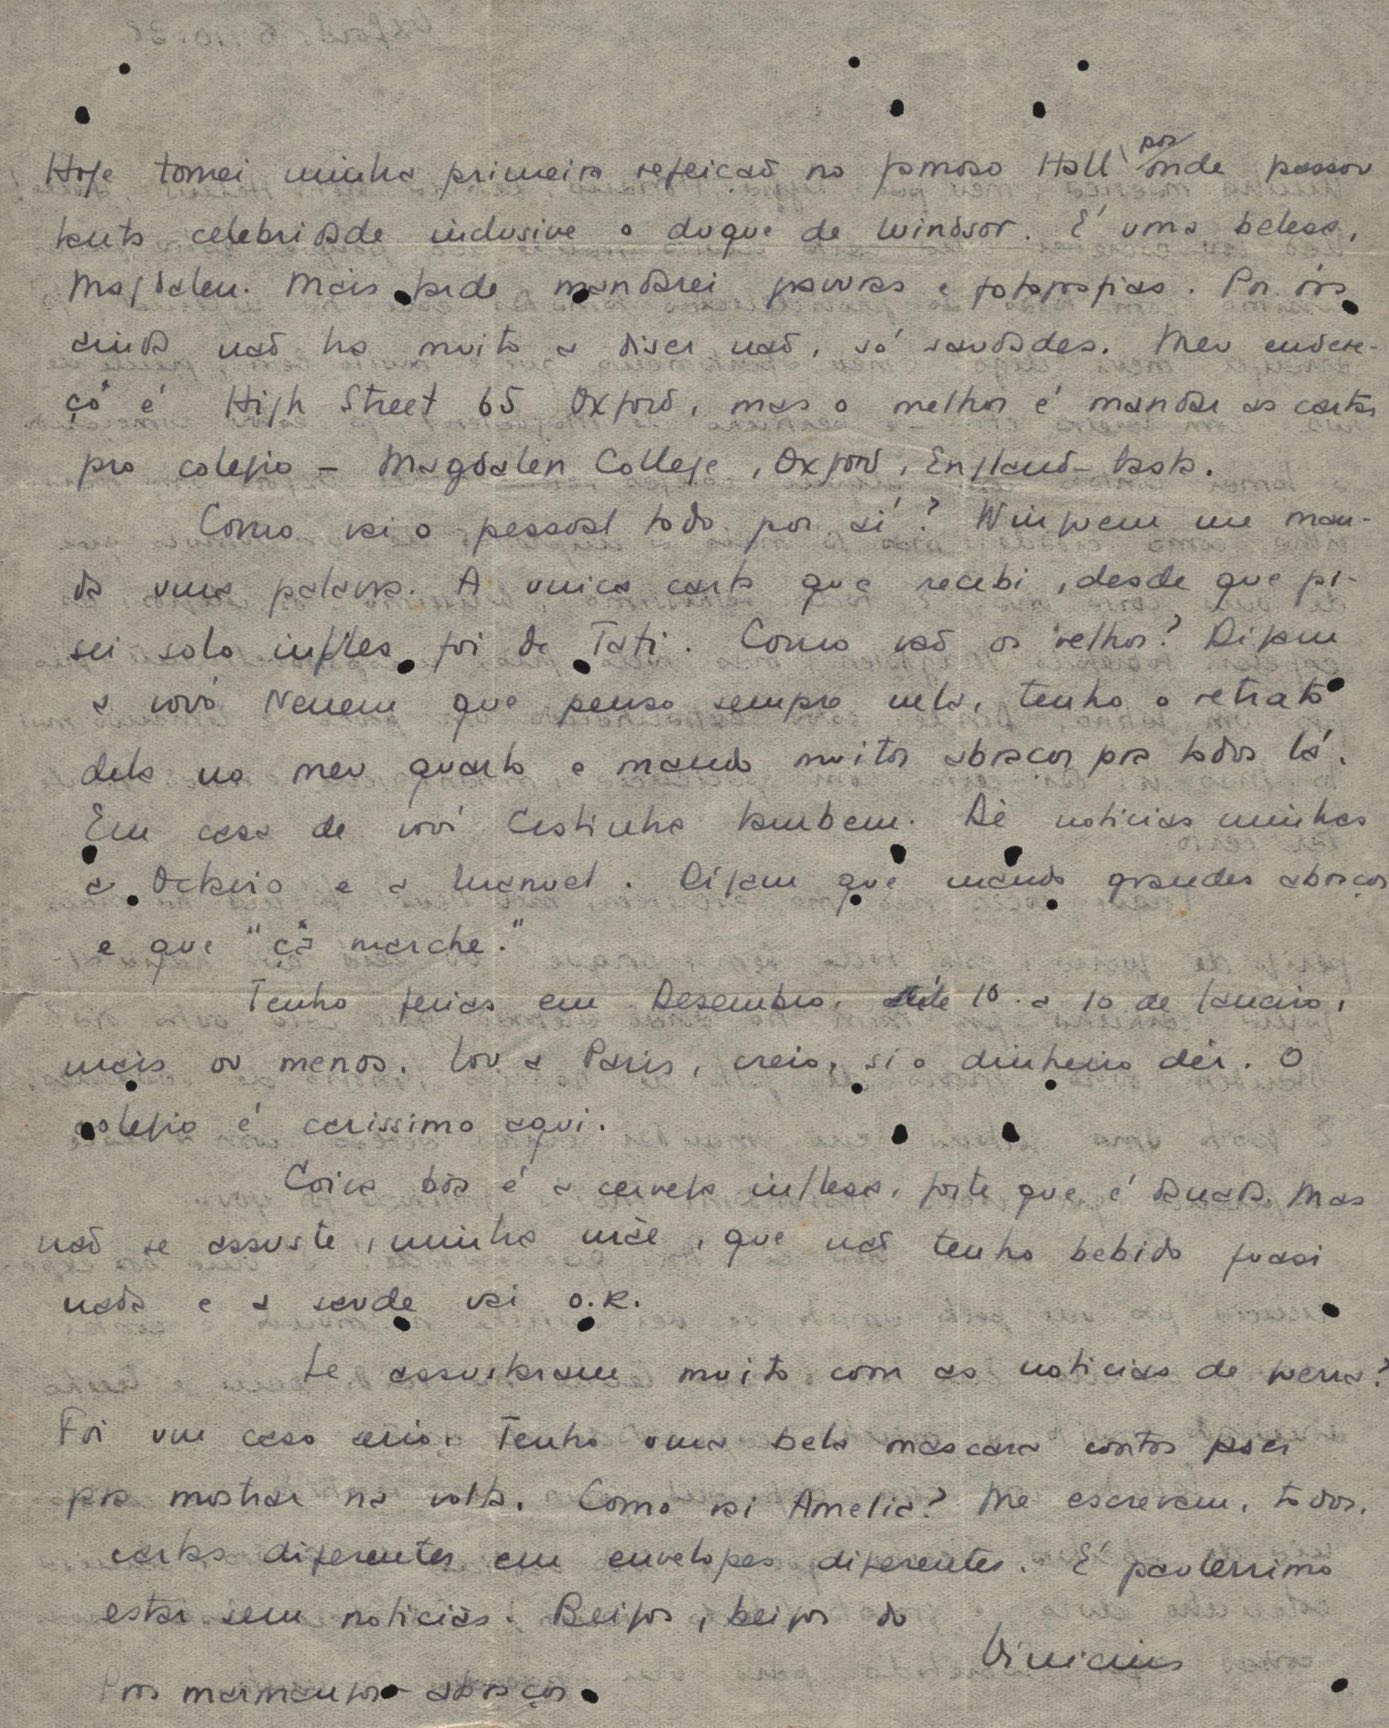 Hoje tomei minha primeira refeicaõ no famoso Hall por onde passou
tanta celebridade inclusive o duque de Windsor. É uma belesa,
Magdalen. Mais tarde mandarei gravuras e fotografias. Por óra
ainda naõ ha muito a diser naõ, só saudades. Meu endere-
ço é High Street 65 Oxford, mas o melhor é mandar as cartas
pro colegio – Magdalen College, Oxford, England – basta.
Como vai o pessoal todo por aí? Ninguem me man-
da uma palavra. A unica carta que recebi, desde que pi-
sei solo inglês foi da Tati. Como vaõ os velhos? Digam
a vovó Nenem que penso sempre nela, tenho o retrato
dela no meu quarto e mando muitos abraços pra todos lá.
Em casa de vovó Cestinha tambem. Dê noticias minhas
a Octavio e a Manuel. Digam que mando grandes abraços
e que "çà marche."
Tenho ferias em Desembro, 10 a 10 de Janeiro,
mais ou menos. Vou a Paris, creio, si o dinheiro dér. O
colegio é carissimo aqui.
Coisa bôa é a cerveja inglesa, forte que é danada. Mas
naõ se assuste, minha mãe, que naõ tenho bebido quasi
nada e a saude vai o.k.
Se assustaram muito com as noticias de guerra?
Foi um caso serio. Tenho uma bela mascara contra gaz
pra mostrar na volta. Como vai Amelia? Me escrevam, todos,
cartas diferentes em envelopes diferentes. É pauterrimo
estar sem noticias. Beijos, beijos do
Vinicius
Pros marmanjos – abraços